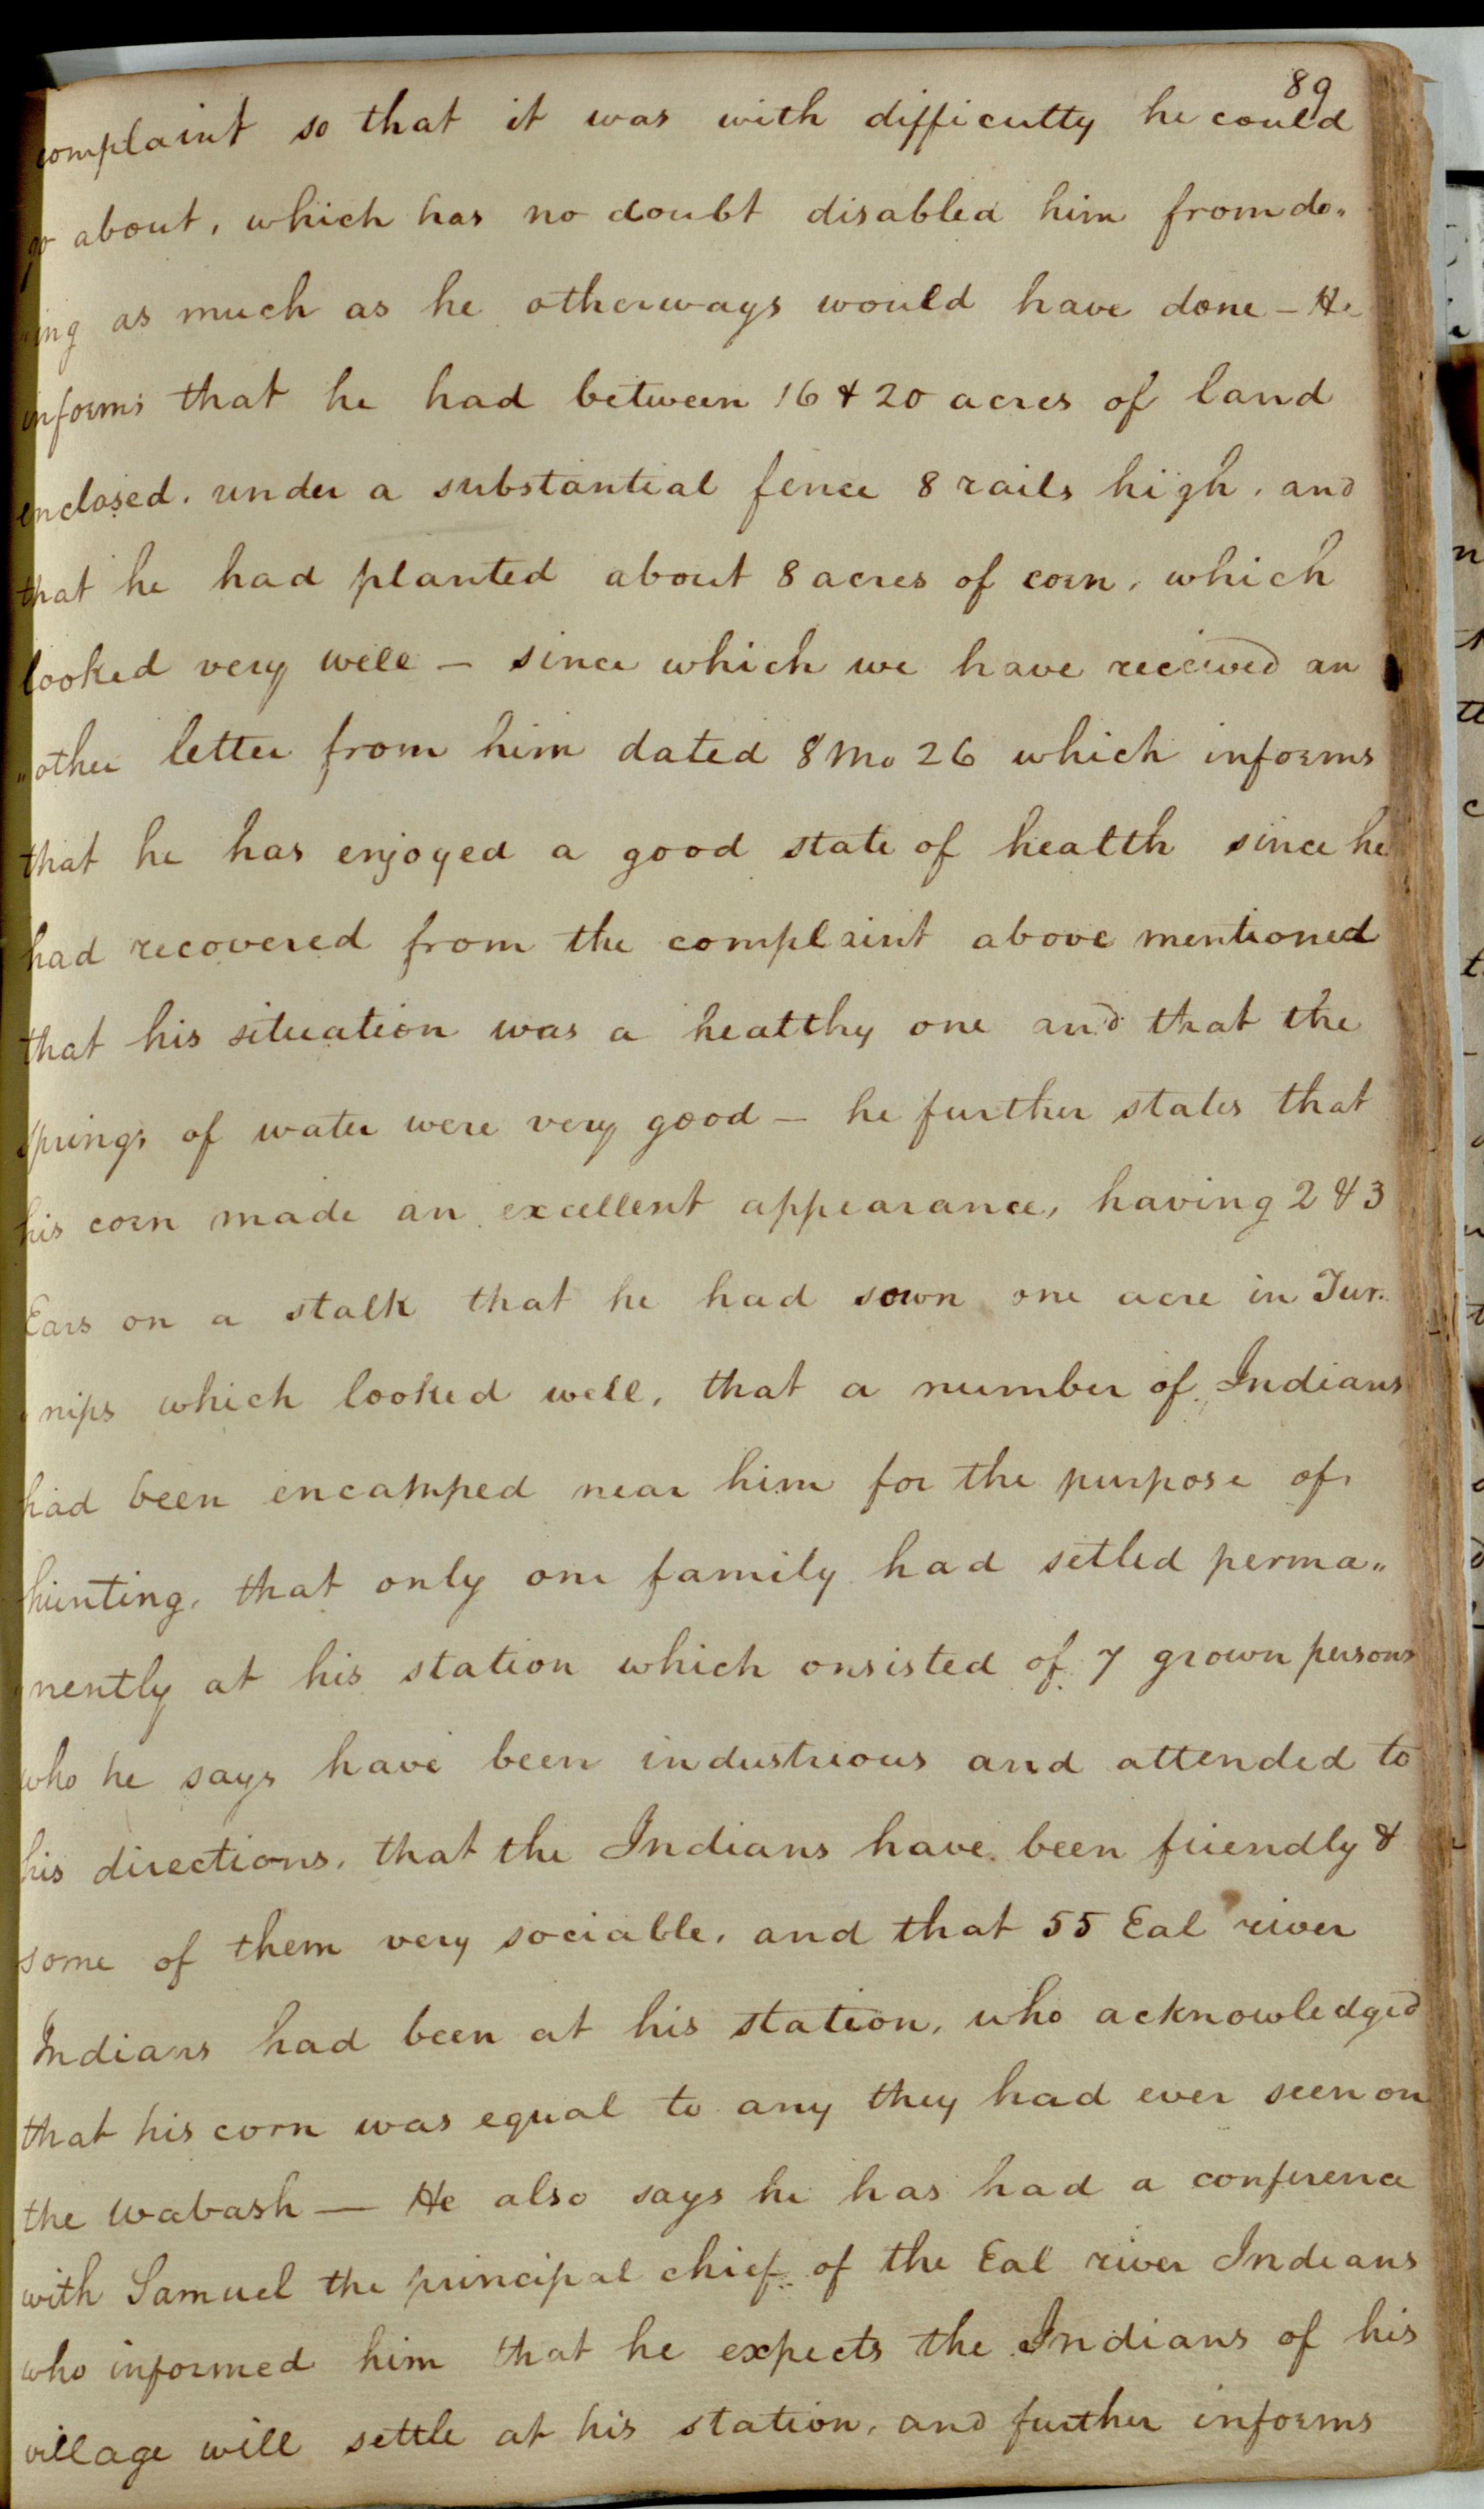 89
complaint so that it was with difficulty he could
go about, which has no doubt disabled him from do„
„ing as much as he otherways would have done – He
informs that he had between 16 & 20 acres of land
enclosed. under a substantial fence 8 rails high, and
that he had planted about 8 acres of corn, which
looked very well – since which we have received an
„other letter from him dated 8 Mo 26 which informs
that he has enjoyed a good state of health since he
had recovered from the complaint above mentioned
that his situation was a healthy one and that the
springs of water were very good – he further states that
his corn made an excellent appearance, having 2 & 3
Ears on a stalk that he had sown one acre in Tur„
„nips which looked well, that a number of Indians
had been encamped near him for the purpose of
hunting, that only one family had setled perma„
„nently at his station which onsisted of 7 grown persons
who he says have been industrious and attended to
his directions, that the Indians have been friendly &
some of them very sociable, and that 55 Eal river
Indians had been at his station, who acknowledged
that his corn was equal to any they had ever seen on
the wabash — He also says he has had a conference
with Samuel the principal chief of the Eal river Indians
who informed him that he expects the Indians of his
village will settle at his station, and further informs